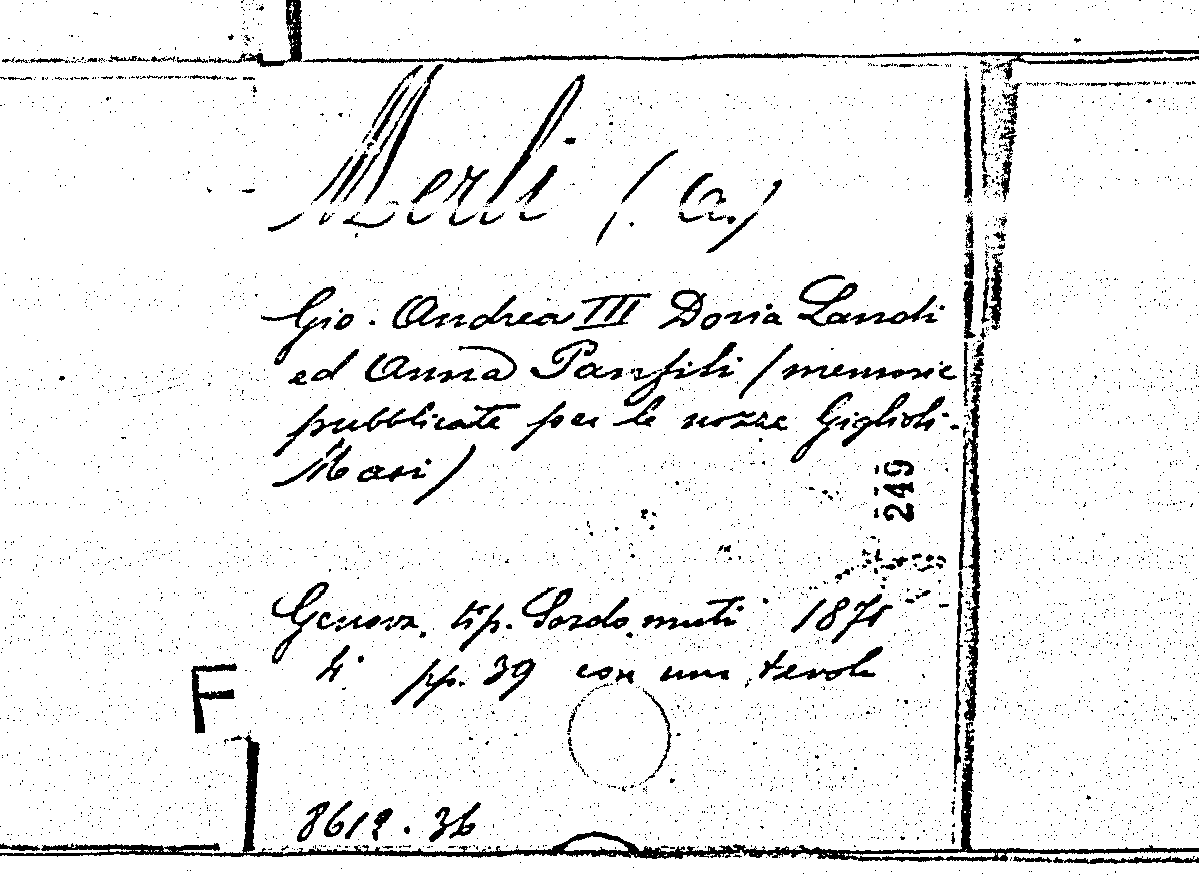 Merli (A.)
Gio. Andrea III Doria Landi
ed Anna Panfili (memorie
pubblicate per le nozze Giglioli-
Masi)
249
Genova, tip. Sordo muti 1871
4° pp. 39 con una tavola
F
8612.36